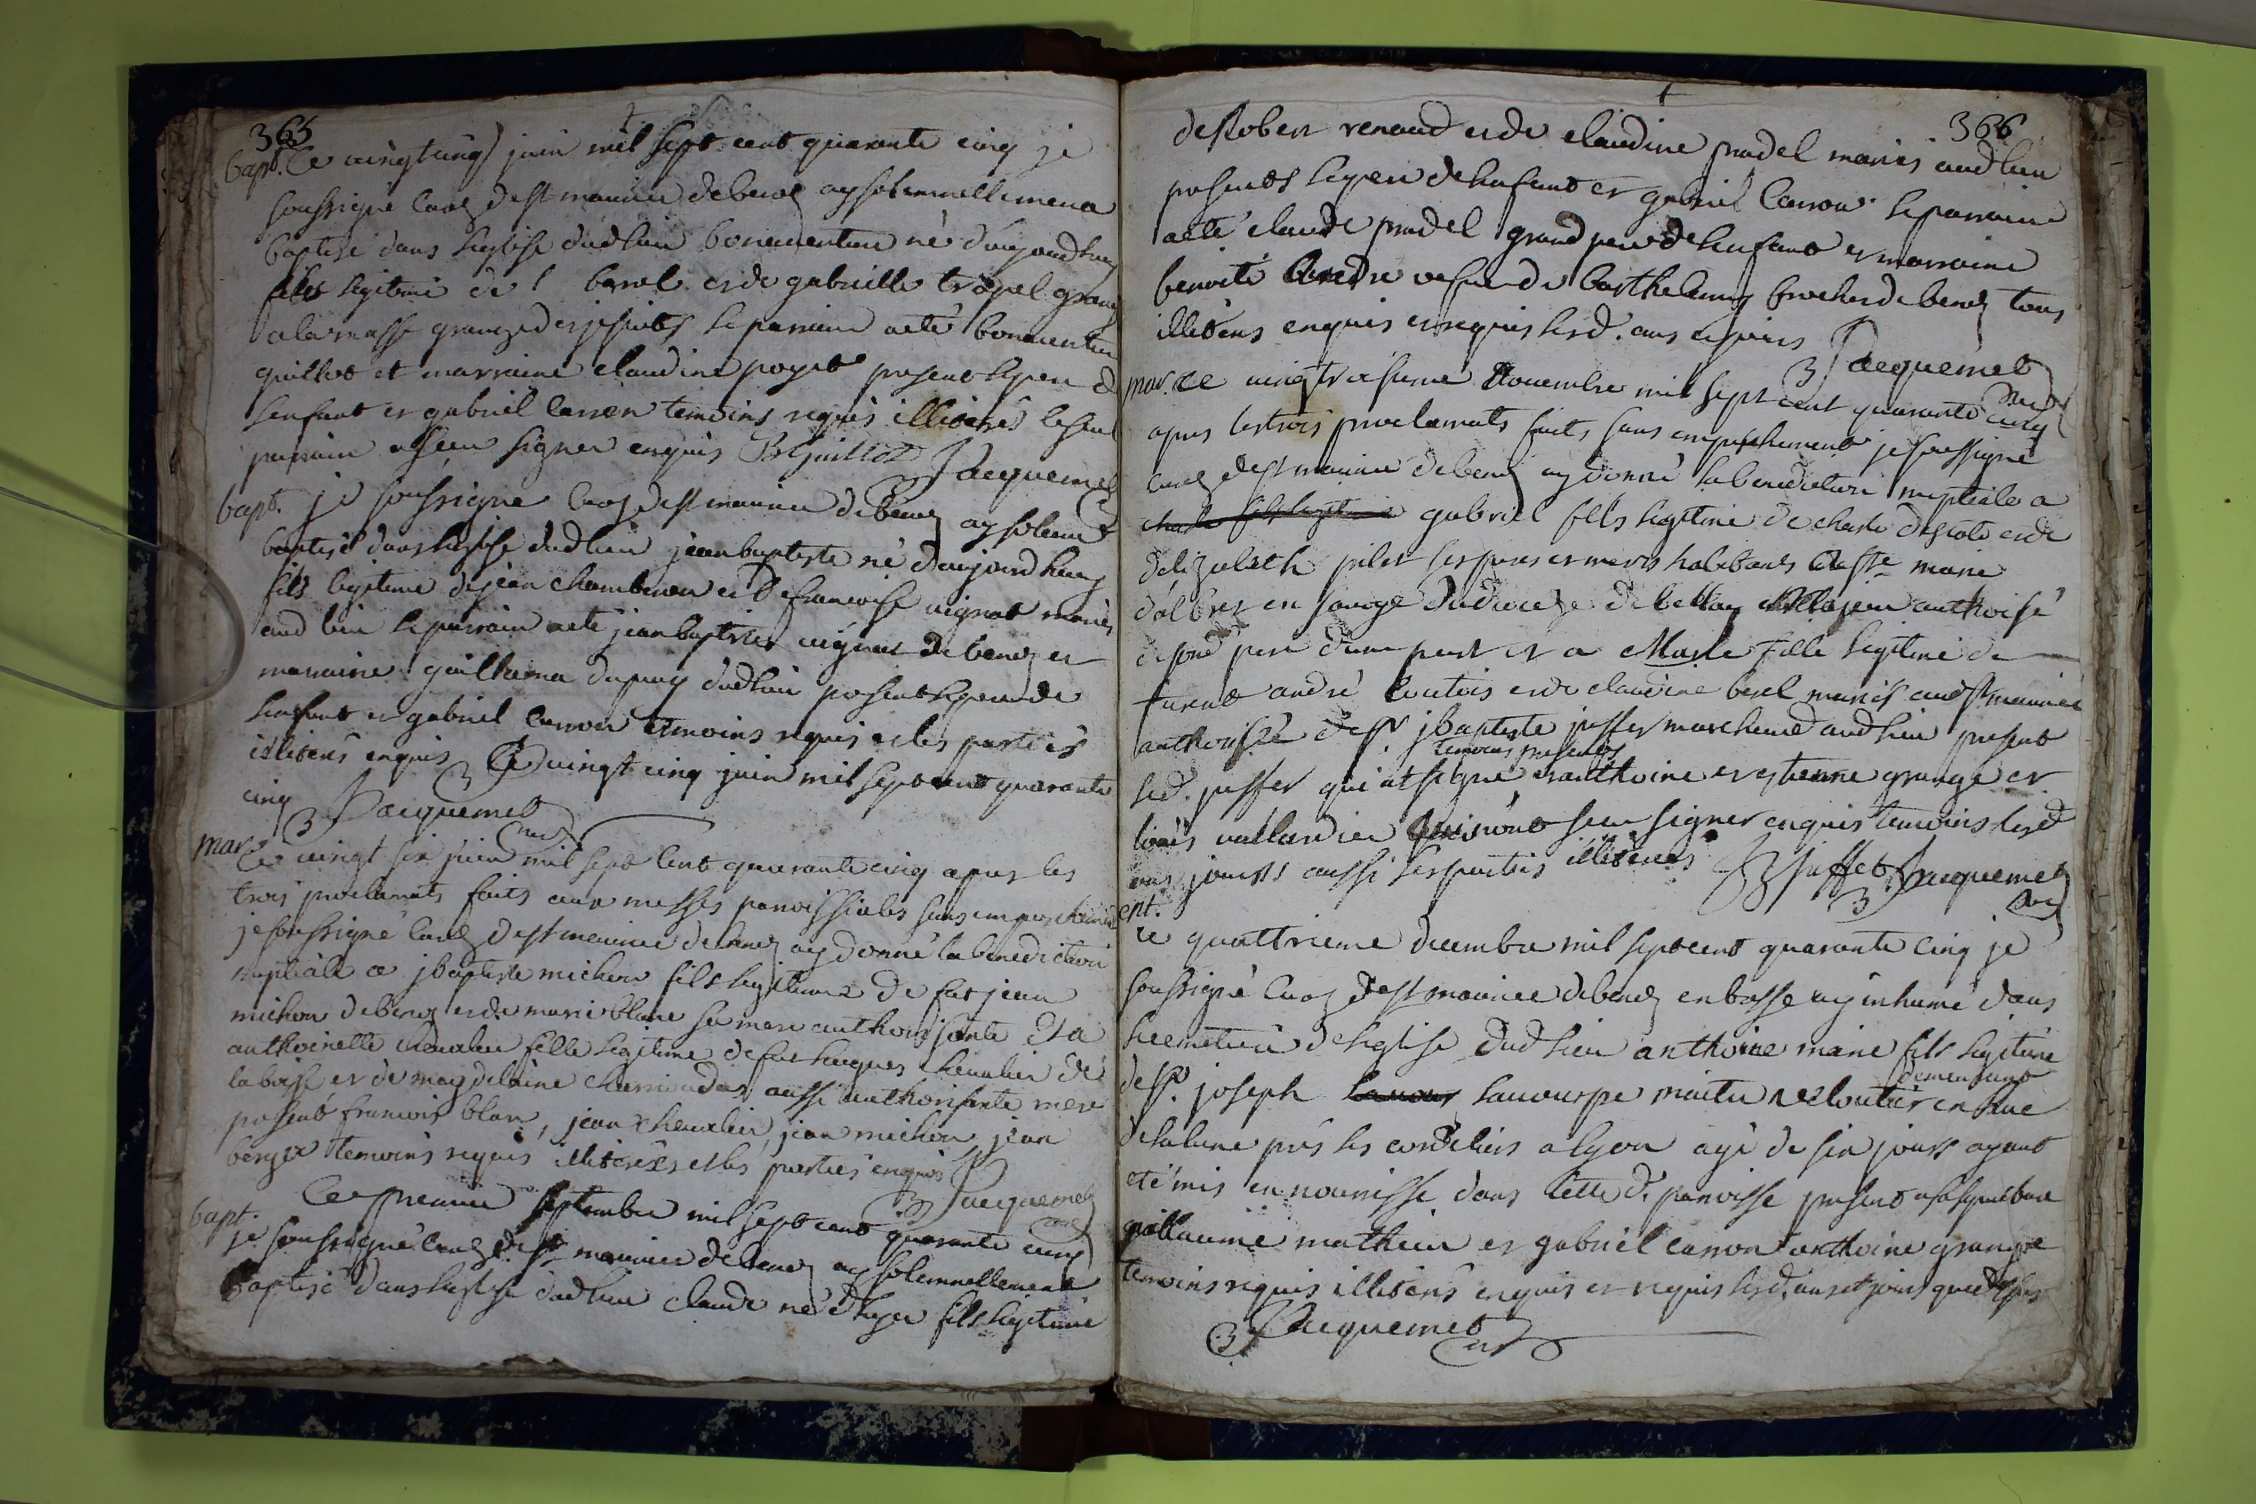 365
bapt. Ce vingt cinq juin mil sept cent quarante cinq je
soussigné curé de st maurice de benoz ay solemnellement
baptisé dans l'eglise dud lieu bonaventure né d'aujourdhuy
fils legitime de barol et de gabrielle tropel
a la masse le parrain a eté bonaventure
guillot et marraine claudine poyet present le pere de
lenfant et gabriel carron temoins requis illiterés le seul
parrain a sceu signer enquis B Guillot Jacquemet
bapt. je soussigné curé de st maurice de benoz ay solemt
baptisé dans leglise dud lieu jean baptiste né d'aujourdhuy
fils legitime de jean chambenou et de francoise vignat mariés
aud lieu le parrain a eté jean baptiste vignat de benoz et
marraine guillerma dupuy dud lieu present le pere de
lenfant et gabriel carron temoins requis et les parties
illiterés enquis Ce vingt cinq juin mil sept cent quarante
cinq Jacquemet curé
mar. Ce vingt six juin mil sept cent quarante cinq apres les
trois proclamats faits aux messes parroissiales sans empechement
je soussigné curé de st maurice de benoz ay donné la benediction
nuptiale a jbaptiste michon fils legitime de fut jean
michon de benoz et de marie blanc sa mere authorisante et a
anthoinette chevalier fille legitime de fut hugues chevalier de
la boisse et de magdelaine aussi authorisante mere
present francois blanc, jean chevalier, jean michon, jean
berger temoins requis illiterés et les parties enquis Jacquemet
curé
bapt. Ce premier septembre mil sept cent quarante cinq
je soussigné curé de st maurice de benoz ay solemnellement
baptisé dans leglise dud lieu claude né d'hyer fils legitime
366
de Robert renaud et de claudine pradel mariés aud lieu
presents le pere de lenfant et gabriel carron le parrain
a eté claude pradel grand pere de lenfant et marraine
benoite vefve de barthelemy brocher de benoz tous
illiterés enquis et requis lesd. ans et jours Jacquemet
curé
mar. ce vingt troisieme novembre mil sept cent quarante cinq
apres les trois proclamats faits sans empechement je soussigné
curé de st maurice de benoz ay donné la benediction nuptiale a
charle fils legitime gabriel fils legitime de charle descote et de
delizabeth pilot ses pere et mere habitants de ste marie
d'albez en savoye du dioceze de bellay authorisé
de sond pere d'une part et a Marie fille legitime de
furent andré coutois et de claudine berel mariés aud st maurice
authorisée de sr jbaptiste juffet marchand aud lieu present
temoins presents
led. juffet qui at signé et anthoine et etienne grange et
louis vallardier qui n'ont sceu signer enquis temoins lesd
ans jours aussi les parties illiterées Juffet Jacquemet
curé
ent.
ce quattrieme decembre mil sept cent quarante cinq je
soussigné curé de st maurice de benoz en basse ay inhumé dans
le cemetiere de leglise dud lieu anthoine marie fils legitime
demeurant
de sr. joseph maitre veloutier en rue
de la lune prés les cordeliers a lyon agé de six jours ayant
eté mis en nourisse dans cette d. paroisse present a sa sepulture
guillaume mathieu et gabriel carron anthoine grange
temoins requis illiterés enquis et requis lesd. an et jours que dessus
Jacquemet
curé